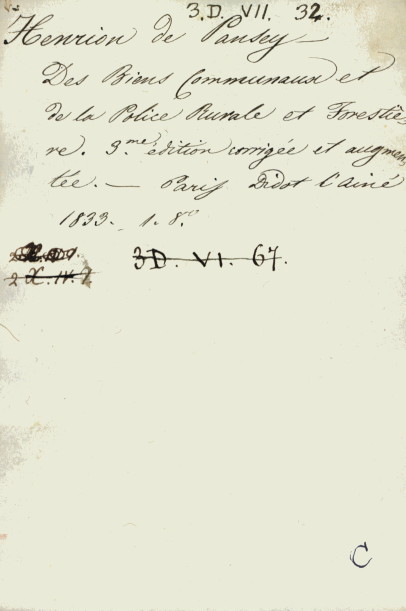 3.D. VII. 32.
Henrion de Pansey —
Des Biens Communaux et
de la Police Rurale et Forestiè-
re. 3.me édition corrigée et augmen
tée. — Paris Didot l'ainé
1833. 1. 8.o
3D. VI. 67.
2 X. IV. 7
C